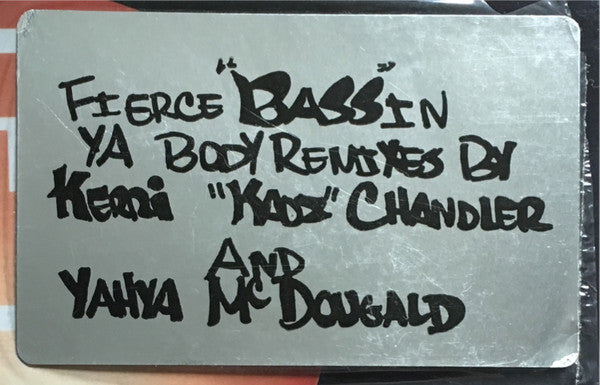 FIERCE "BASS" IN
YA BODY REMIXES BY
KERRI "KAOZ" CHANDLER
AND
YAHYA McDOUGALD